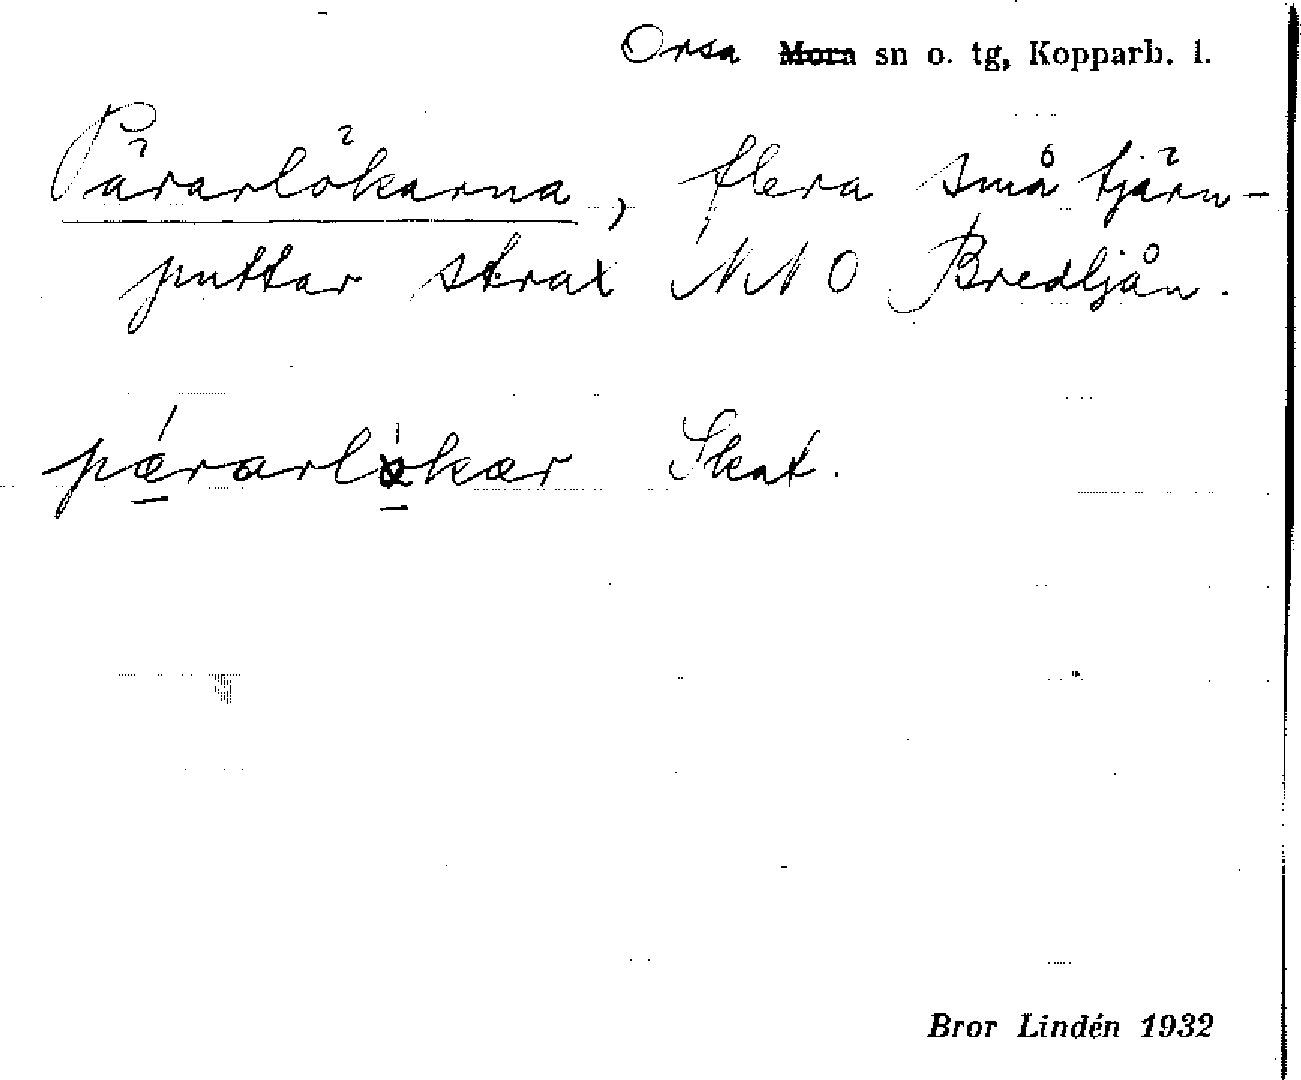 Orsa Mora sn o. tg, Kopparb. l.
Pärarlökarna, flera små tjärn-
puttar strax NNO Bredtjån.
pǽrarlökær Skat.
Bror Lindén 1932